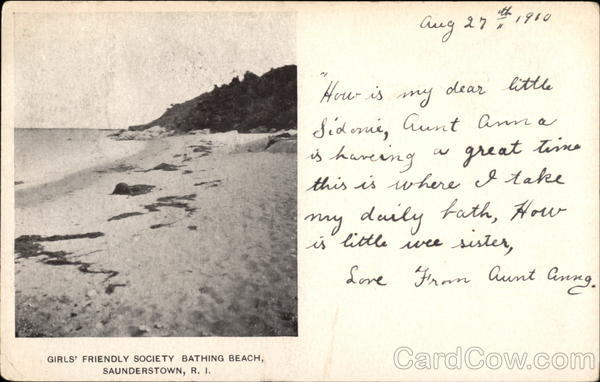 Aug 27th 1910
"How is my dear little
Sidonie, Aunt Anna
is having a great time
this is where I take
my daily bath, How
is little wee sister,
Love From Aunt Anna.
GIRLS' FRIENDLY SOCIETY BATHING BEACH,
SAUNDERSTOWN, R. I.
CardCow.com